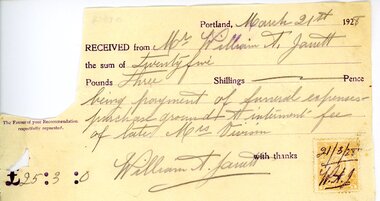 Portland, March 21st 1928
RECEIVED from Mr William A. Jarrett
the sum of Twenty five
Pounds Three Shillings Pence
being payment of funeral expenses
purchase ground & interment fee
of late Mrs Vivian
The Favour of your Recommendation
respectfully requested.
with thanks
William A. Jarrett
£25=3=0
21/3/28
W.A.J